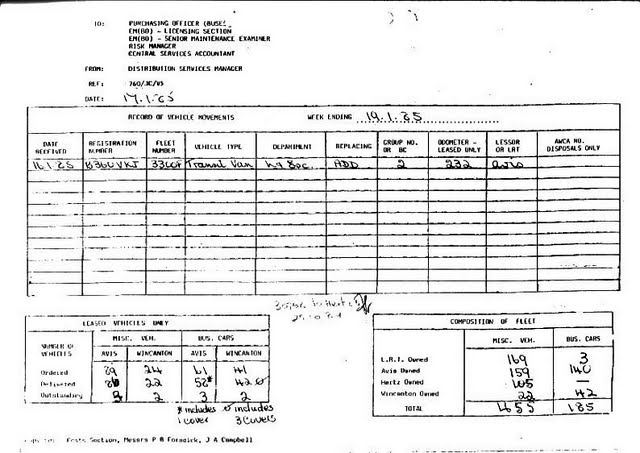 TO: PURCHASING OFFICER (BUSES)
EM(BO) - LICENSING SECTION
EM(BO) - SENIOR MAINTENANCE EXAMINER
RISK MANAGER
CENTRAL SERVICES ACCOUNTANT
FROM: DISTRIBUTION SERVICES MANAGER
REF: 760/JC/VS
DATE: 17.1.85
RECORD OF VEHICLE MOVEMENTS WEEK ENDING 19.1.85
DATE RECEIVED REGISTRATION NUMBER FLEET NUMBER VEHICLE TYPE DEPARTMENT REPLACING GROUP NO. OR BC ODOMETER - LEASED ONLY LESSOR OR LRT AWCA NO. DISPOSALS ONLY
16.1.85 Transit Van ADD 2 232 avis
LEASED VEHICLES ONLY
NUMBER OF VEHICLES MISC. VEH. BUS. CARS
AVIS WINCANTON AVIS WINCANTON
Ordered 89 24 61 41
Delivered 22 58*
Outstanding 2 3 2
* includes 1 cover
includes 3 covers
COMPOSITION OF FLEET
MISC. VEH. BUS. CARS
L.R.T. Owned 169 3
Avis Owned 159 140
Hertz Owned 105 —
Wincanton Owned 22 42
TOTAL 455 185
Costs Section, Messrs P B Fornnick, J A Campbell